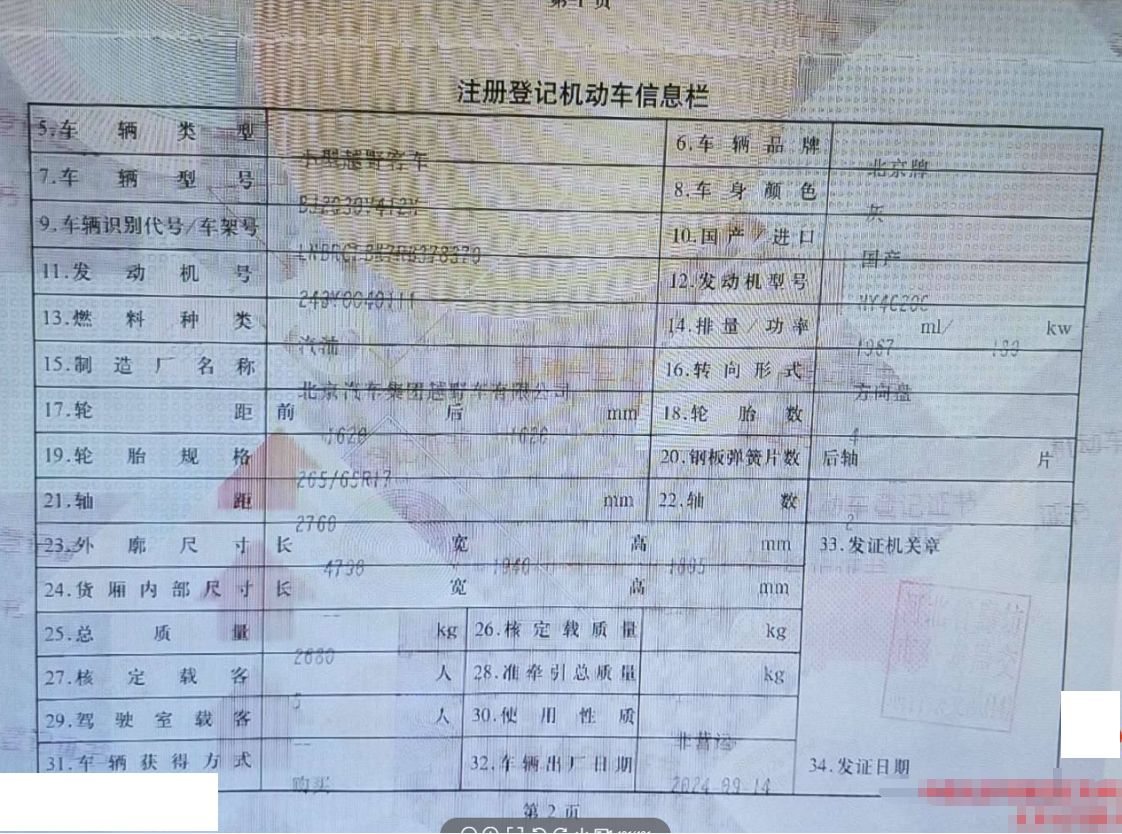 注册登记机动车信息栏
5.车辆类型 小型越野客车 6.车辆品牌 北京牌
7.车辆型号 8.车身颜色 灰
9.车辆识别代号/车架号 10.国产/进口 国产
11.发动机号 12.发动机型号
13.燃料种类 汽油 14.排量/功率 ml/ kw 1967
15.制造厂名称 北京汽车集团越野车有限公司 16.转向形式 方向盘
17.轮距 前 1620 后 1620 mm 18.轮胎数 4
19.轮胎规格 265/65R17 20.钢板弹簧片数 后轴 片
21.轴距 2760 mm 22.轴数 2
23.外廓尺寸 长 宽 高 mm 33.发证机关章
24.货厢内部尺寸 长 宽 高 mm
25.总质量 kg 26.核定载质量 kg
27.核定载客 5 人 28.准牵引总质量 kg
29.驾驶室载客 人 30.使用性质 非营运
31.车辆获得方式 购买 32.车辆出厂日期 2024-09-14 34.发证日期
第 2 页